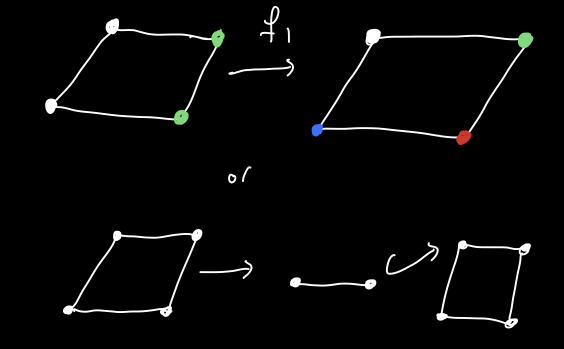 f1
or